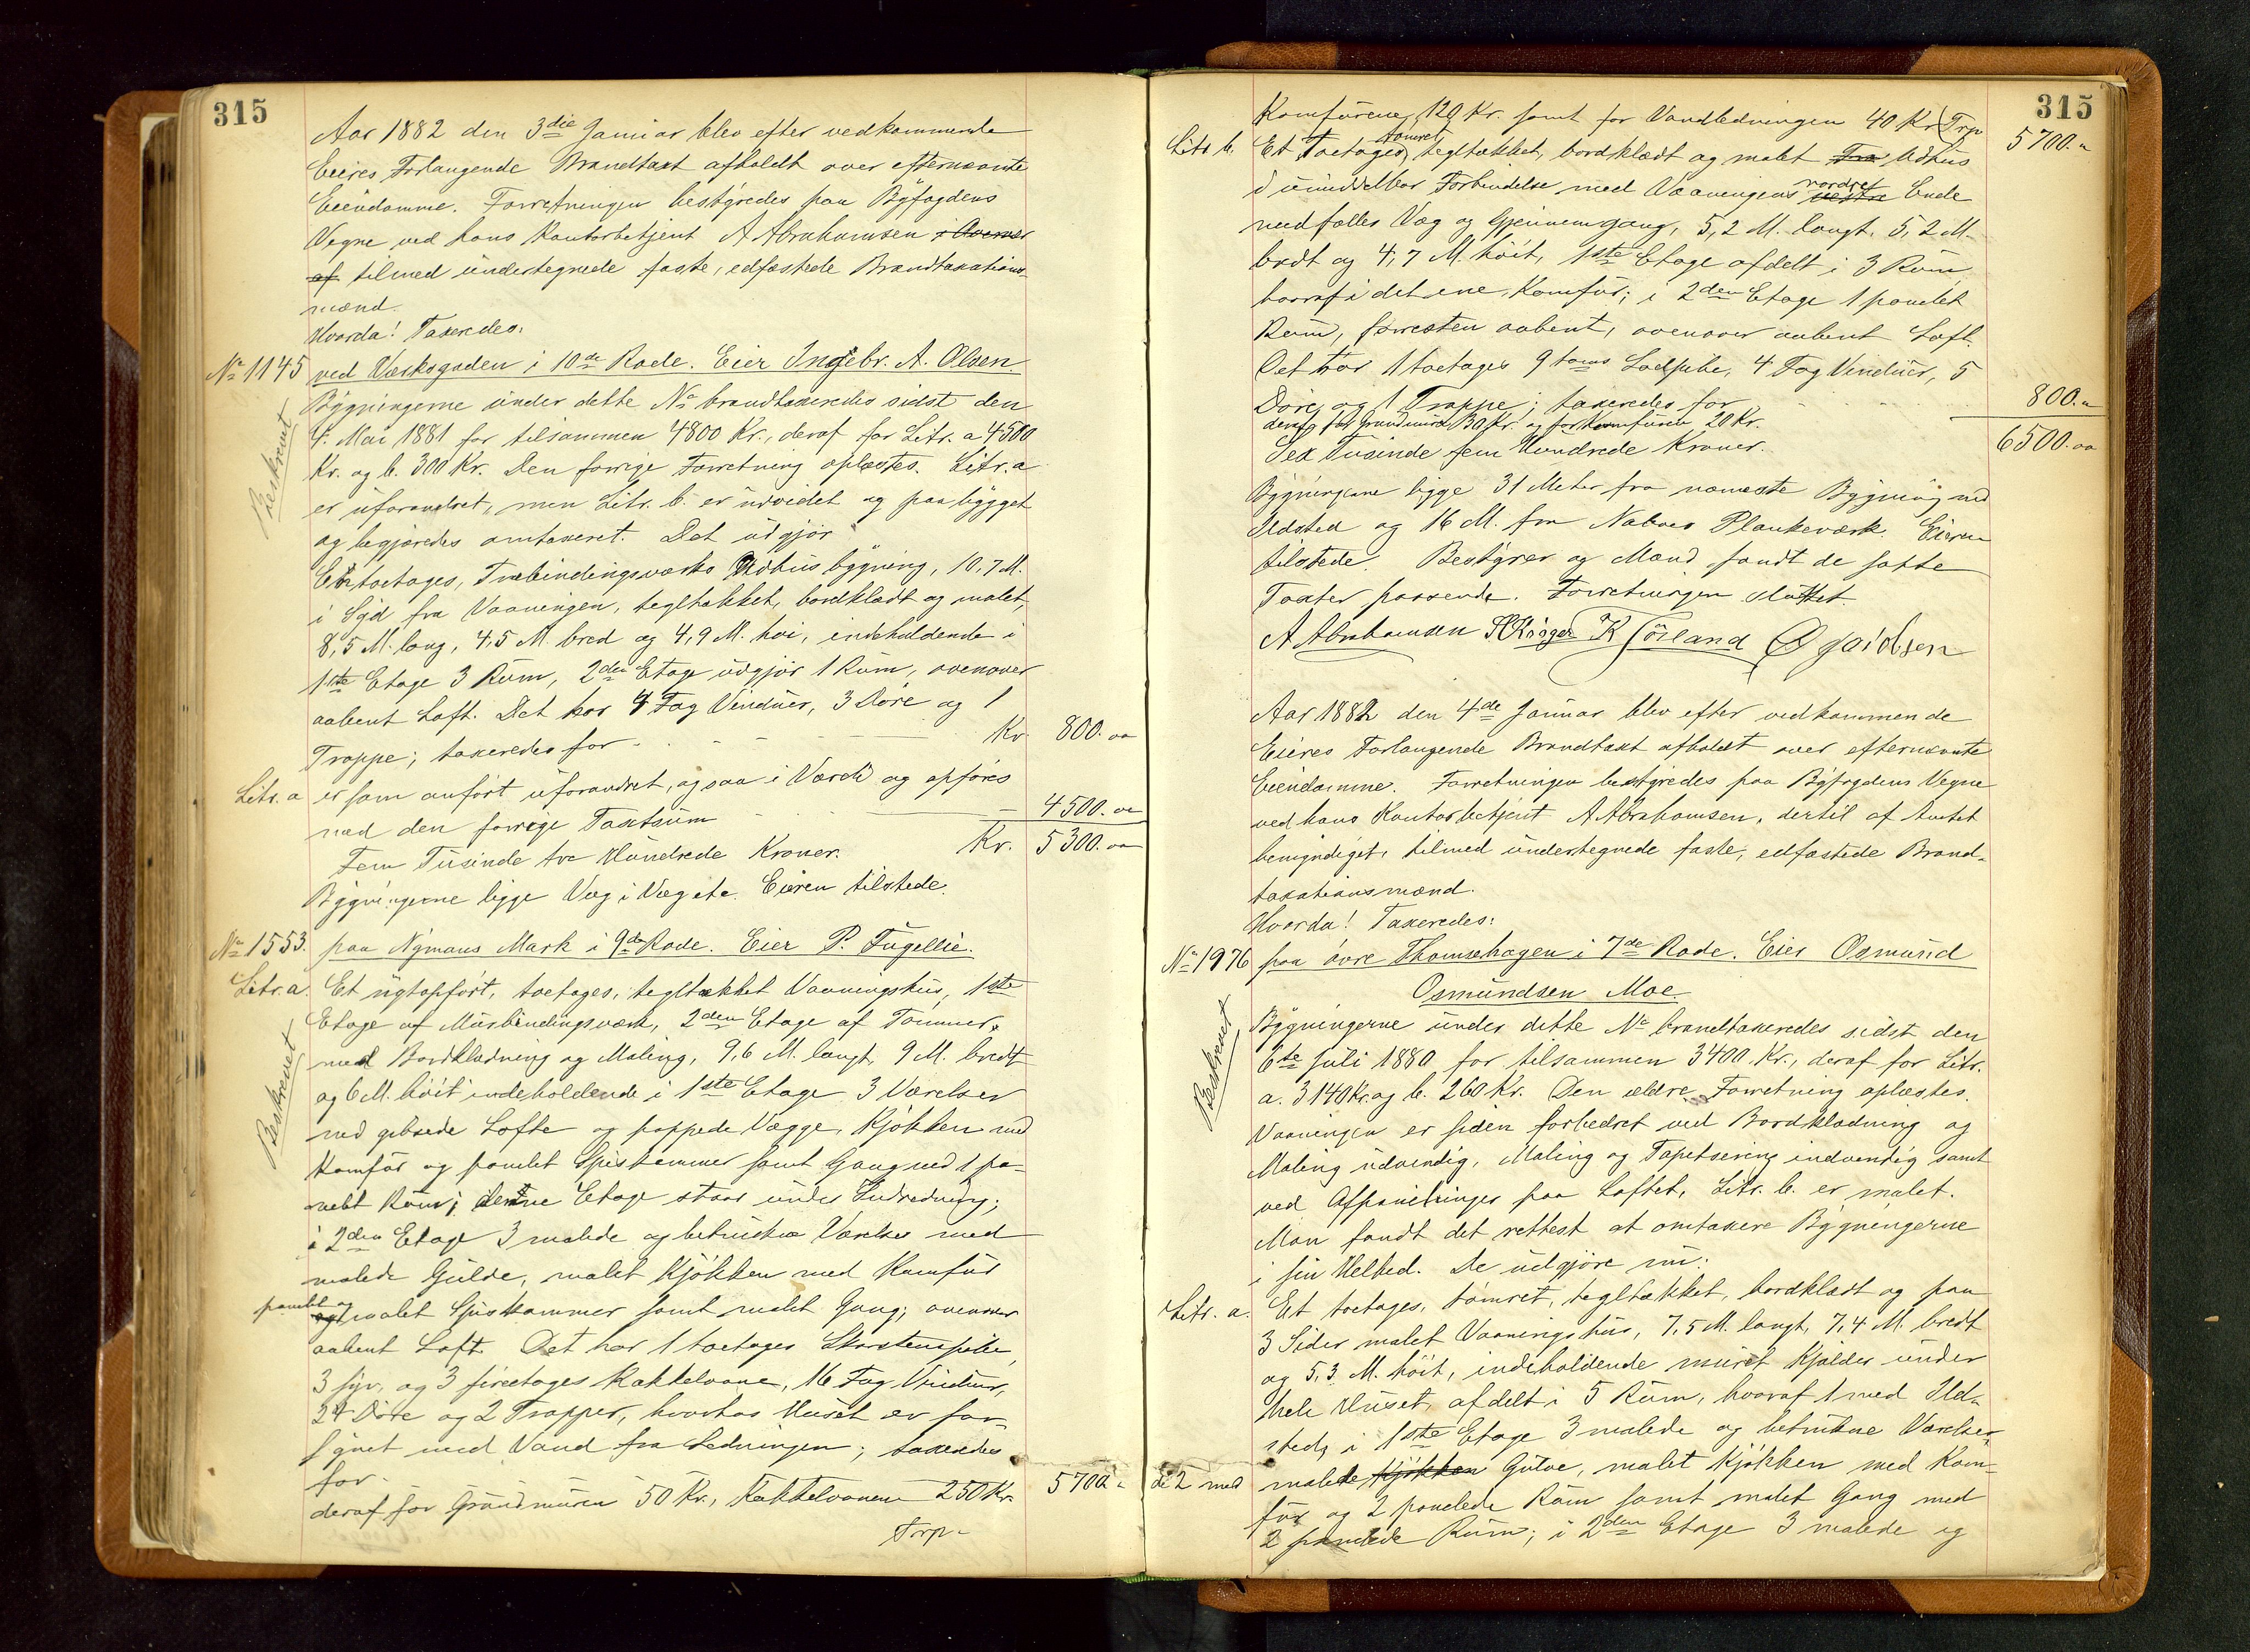 315
Aar 1882 den 3die Januar blev efter vedkommende
Eieres Forlangende Brandtaxt afholdt over efternævnte
Eiendomme. Forretningen bestyredes paa Byfogdens
Vegne ved hans Kontorbetjent A Abrahamsen
af tilmed undertegnede faste, edfæstede Brandtaxations-
mænd.
Hvorda! Taxeredes:
No 1145 ved Væsksgaden i 10de Rode. Eier Ingebr. A. Olsen.
Beskrevet
Bygningerne under dette No brandtaxeredes sidst den
4. Mai 1881 for tilsammen 4800 Kr., deraf for Litr. a 4500
Kr. og b. 300 Kr. Den forrige Forretning oplæstes. Litr. a
er uforandret, men Litr. b. er udvidet og paabygget
og begjæredes omtaxeret. Det udgjør
En toetages, Træbindingsværks Udhusbygning, 10,7 M.
i Syd fra Vaaningen, tegltækket, bordklædt og malet,
8,5 M. lang, 4,5 M. bred og 4,9 M. høi, indeholdende i
1ste Etage 3 Rum, 2den Etage udgjør 1 Rum, ovenover
aabent Loft. Det har 4 Fag Vinduer, 3 Døre og 1
Trappe; taxeredes for Kr. 800. oo
Litr. a er som anført uforandret, ogsaa i Værdi og opføres
med den forrige Taxtsum 4500. oo
Fem Tusinde tre Hundrede Kroner. Kr. 5300. oo
Bygningerne ligge Væg i Væg etc. Eieren tilstede.
No 1553. paa Nymans Mark i 9de Rode. Eier P. Fugellie.
Litr. a. Et nyt opført, toetages, tegltækket Vaaningshus, 1ste
Beskrevet
Etage af Murbindingsværk, 2den Etage af Tømmer,
med Bordklædning og Maling, 9,6 M. langt, 9 M. bredt
og 6 M. høit indeholdende i 1ste Etage 3 Værelser
med gibsede Lofte og pappede Vægge, Kjøkken med
Komfur og panelet Spiskammer samt Gang med 1 pa-
nelt Rum; denne Etage staar under Indredning;
i 2den Etage 3 malede og betrukne Værelser med
malede Gulve, malet Kjøkken med Komfur
panelet og
og malet Spiskammer samt malet Gang; ovenover
aabent Loft. Det har 1 toetages Skorstenspibe,
3 fyr. og 3 fireetages Kakkelovne, 16 Fag Vinduer,
24 Døre og 2 Trapper, hvorhos Huset er for-
synet med Vand fra Ledningen; taxeredes
for 5700.
deraf for Grundmuren 50 Kr., Kakkelovnene 250 Kr.
Trp-
315
Komfurene 120 Kr. samt for Vandledningen 40 Kr. Trp 5700. "
tømret
Litr b. Et Toetages, tegltækket, bordklædt og malet Udhus
nordre
i umiddelbar Forbindelse med Vaaningens vestre Ende
med fælles Væg og Gjennemgang, 5,2 M. langt, 5,2 M.
bredt og 4,7 M. høit, 1ste Etage afdelt i 3 Rum
hvoraf i det ene Komfur; i 2den Etage 1 panelet
Rum, forresten aabent, ovenover aabent Loft.
Det har 1 toetages 9 toms Lodpibe, 4 Fag Vinduer, 5
Døre og 1 Trappe; taxeredes for 800. "
deraf for Grundmuren 30 Kr. og for Komfuren 20 Kr.
Sex Tusinde fem Hundrede Kroner. 6500. oo
Bygningerne ligge 31 Meter fra nærmeste Bygning med
Ildsted og 16 M. fra Naboes Plankeværk. Eieren
tilstede. Bestyrer og Mænd fandt de satte
Taxter passende. Forretningen sluttet.
A Abrahamsen
Aar 1882 den 4de Januar blev efter vedkommende
Eieres Forlangende Brandtaxt afholdt over efternævnte
Eiendomme. Forretningen bestyredes paa Byfogdens Vegne
ved hans Kontorbetjent A Abrahamsen, dertil af Amtet
bemyndiget, tilmed undertegnede faste, edfæstede Brand-
taxationsmænd.
Hvorda! Taxeredes:
No 1976 paa øvre Thomsehagen i 7de Rode. Eier Osmund
Osmundsen Moe.
Beskrevet
Bygningerne under dette No brandtaxeredes sidst den
6te Juli 1880 for tilsammen 3400 Kr., deraf for Litr.
a. 3140 Kr. og b. 260 Kr. Den ældre Forretning oplæstes.
Vaaningen er siden forbedret ved Bordklædning og
Maling udvendig, Maling og Tapetsering indvendig samt
ved Afpanelinger paa Loftet, Litr. b. er malet.
Man fandt det rettest at omtaxere Bygningerne
i sin Helhed. De udgjøre nu:
Litr. a. Et toetages, tømret, tegltækket, bordklædt og paa
3 Sider malet Vaaningshus, 7,5 M. langt, 7,4 M. bredt
og 5,3 M. høit, indeholdende muret Kjælder under
hele Huset, afdelt i 5 Rum, hvoraf 1 med Ild-
sted, i 1ste Etage 3 malede og betrukne Værelser,
de 2 med malede Kjøkken Gulve, malet Kjøkken med Kom-
fur og 2 panelede Rum samt malet Gang med
2 panelede Rum; i 2den Etage 3 malede og